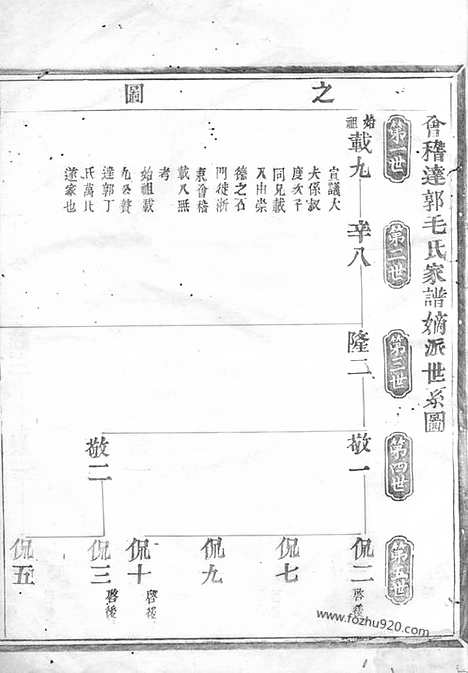 會稽達郭毛氏家譜嫡派世系圖
之圖
第一世
第二世
第三世
第四世
第五世
始祖
載九
宣議大
夫係叔
度次子
同兄載
八由崇
德之石
門徒浙
東會稽
載八無
考
始祖載
九公贅
達郭丁
氏萬氏
遂家也
辛八
隆二
敬一
敬二
侃二
啓後
侃七
侃九
侃十
啓後
侃三
啓後
侃五
www.fozhu920.com